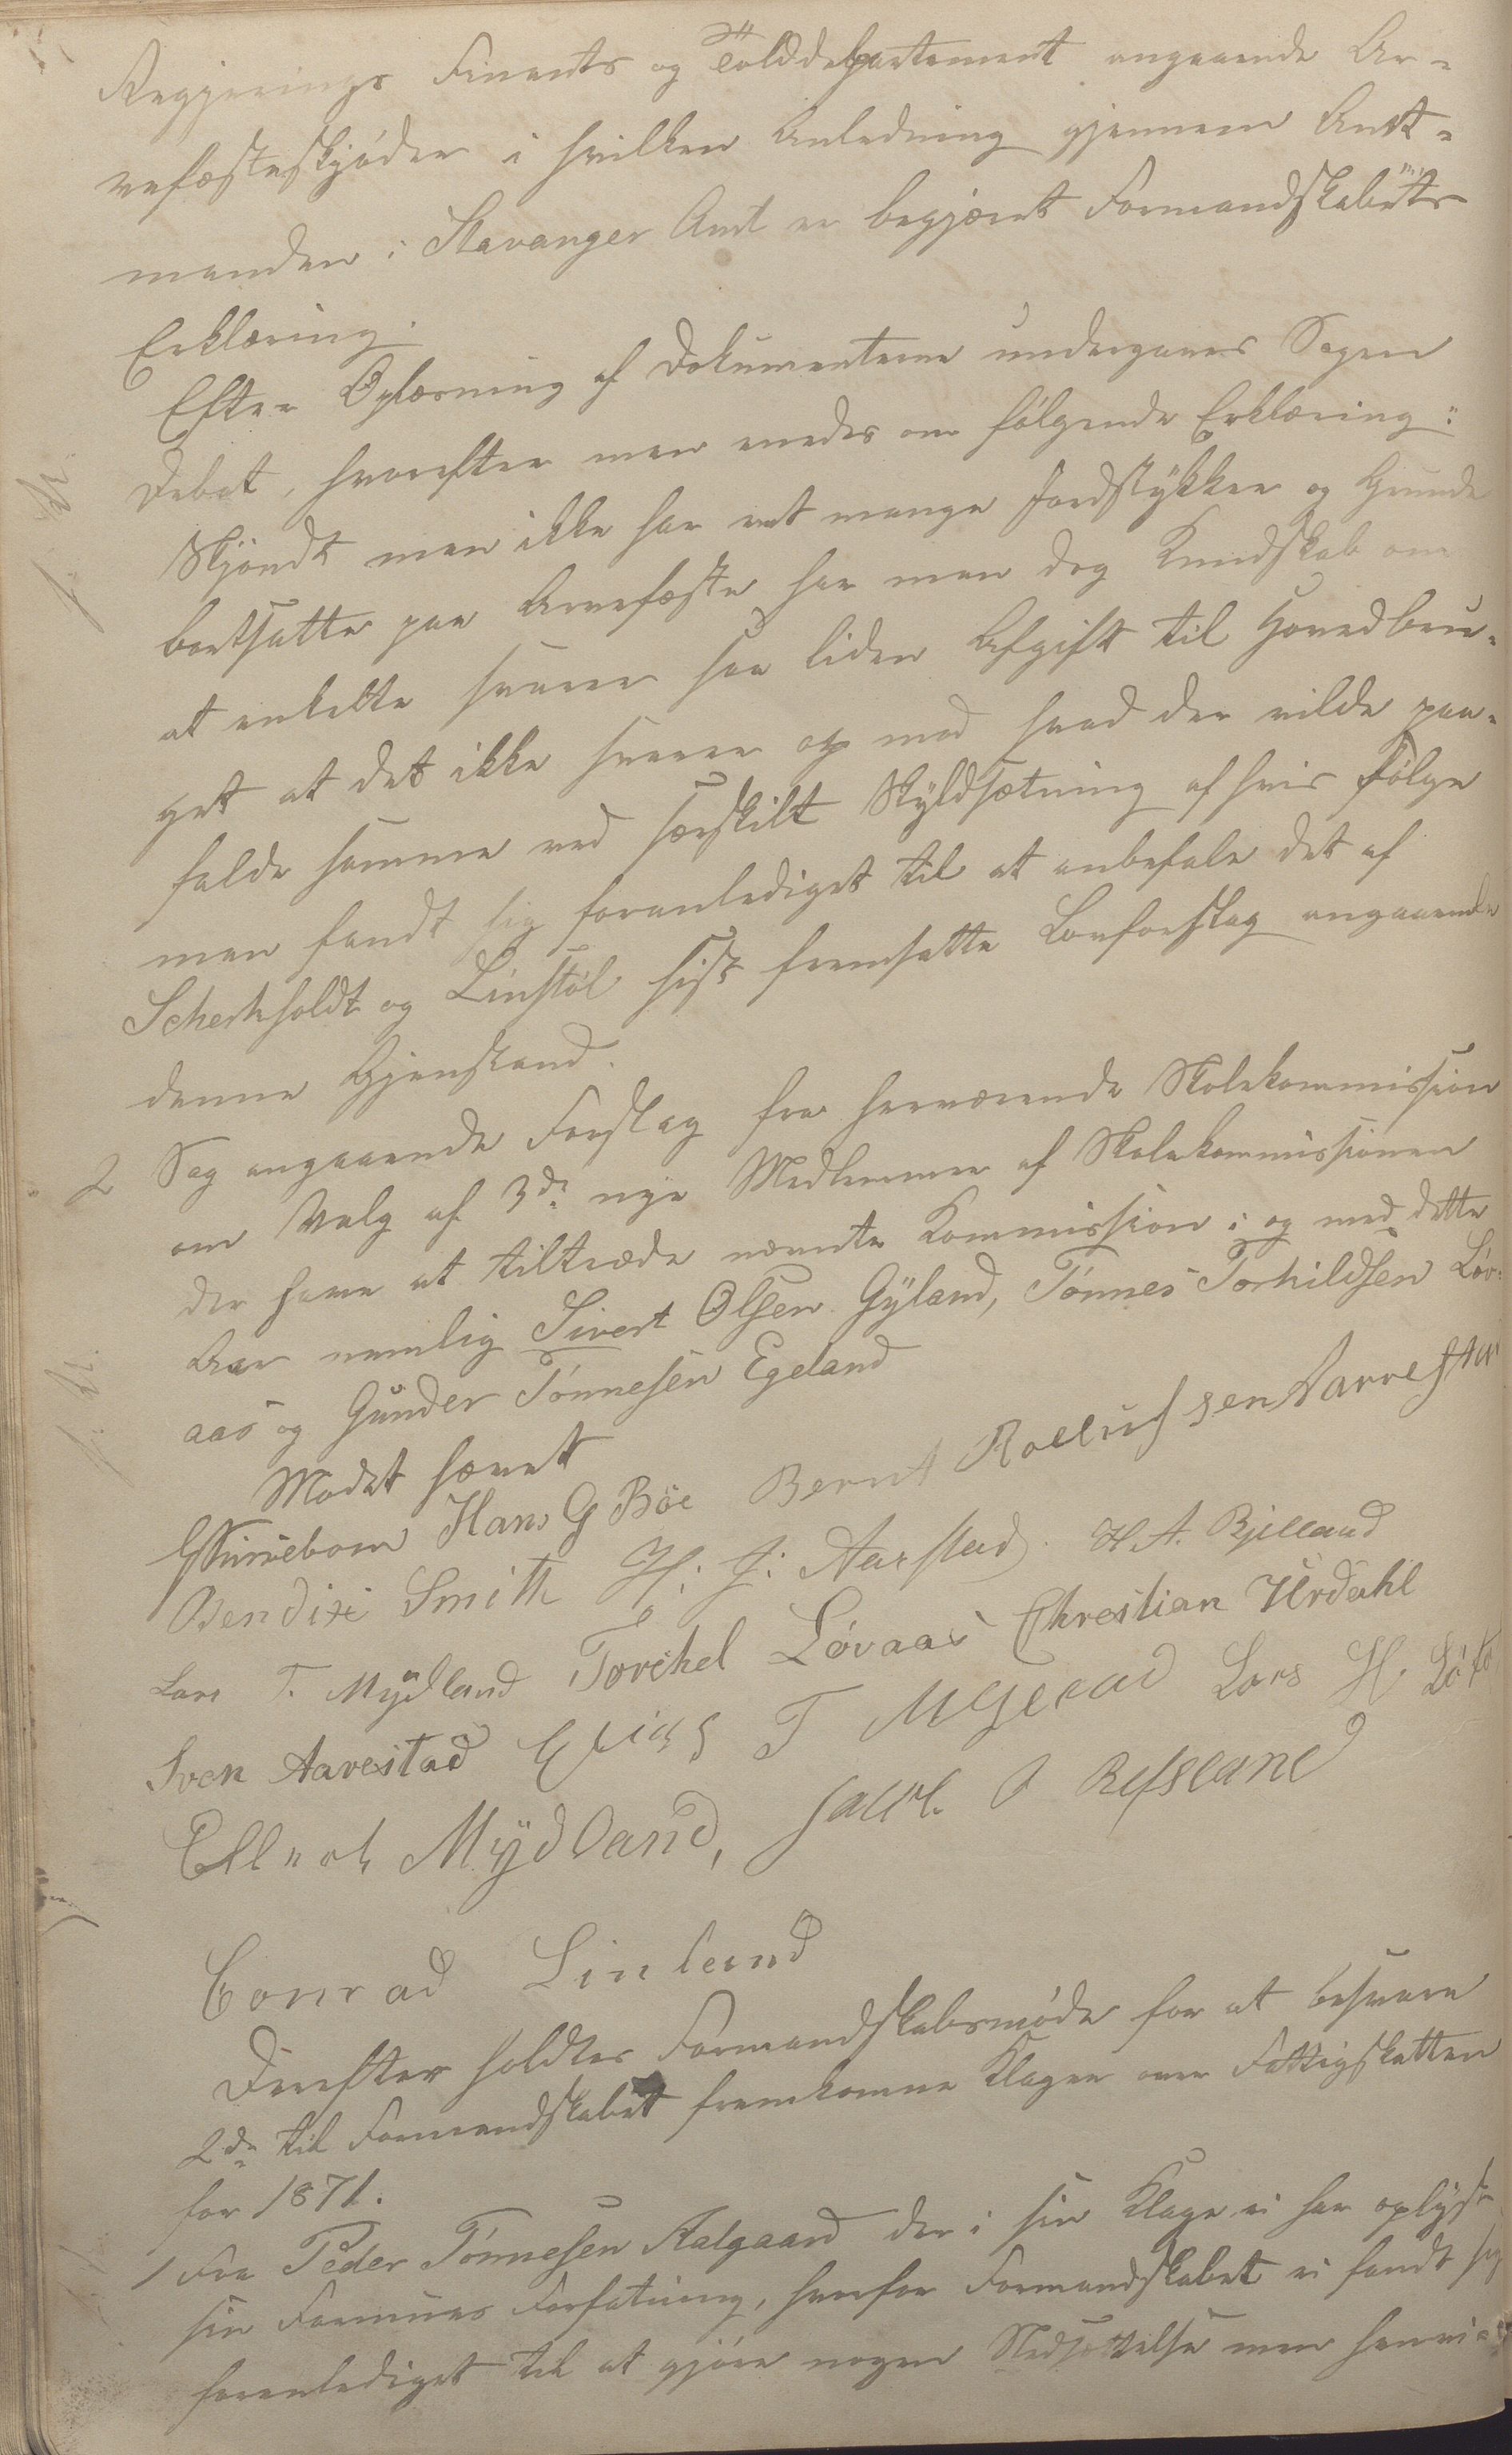 Regjerings Finants og Tolddepartement angaaende Ar-
vefæsteskjøder i hvilken Anledning gjennem Amt-
manden i Stavanger Amt er begjæret Formandskabets
Erklæring.
Efter Oplæsning af Dokumenterne undergaves Sagen
Debat, hvorefter man enedes om følgende Erklæring:
Skjøndt man ikke har ret mange Jordstykker og Grunde
bortsatte paa Arvefæste har man dog Kundskab om
at enkelte svarer saa liden Afgift til Hovedbru-
get at det ikke svarer op mod hvad der vilde paa-
falde samme ved særskilt Skyldsætning af hvis Følge
man fandt sig foranlediget til at anbefale det af
og Linstøl sidst fremsatte Lovforslag angaaende
denne Gjenstand.
2 Sag angaaende Forslag fra herværende Skolekommission
om Valg af 3de nye Medlemmer af Skolekommissionen
der have at tiltræde nævnte Kommission i og med dette
Aar nemlig Sivert Olsen Gyland, Tønnes Torkildsen Løv-
aas og Gunder Tønnesen Egeland
Mødet hævet
Hans G Böe Bernt
Bendix Smith H. J. Aarstad. H A. Bjelland
Lars T. Mydland Torkel Løvaas Christian Urdahl
Sven Aarestad Elias T Lars H.
Ellert Mydland, Jacob O Refsland
Conrad Linland
Derefter holdtes Formandskabsmøde for at besvare
2de til Formandskabet fremkomne Klager over Fattigskatten
for 1871.
1 Fra Peder Tønnesen Aalgaard der i sin Klage ei har oplyst
sin Formues Forfatning, hvorfor Formandskabet ei fandt sig
foranlediget til at gjøre nogen Nedsættelse men henvi-